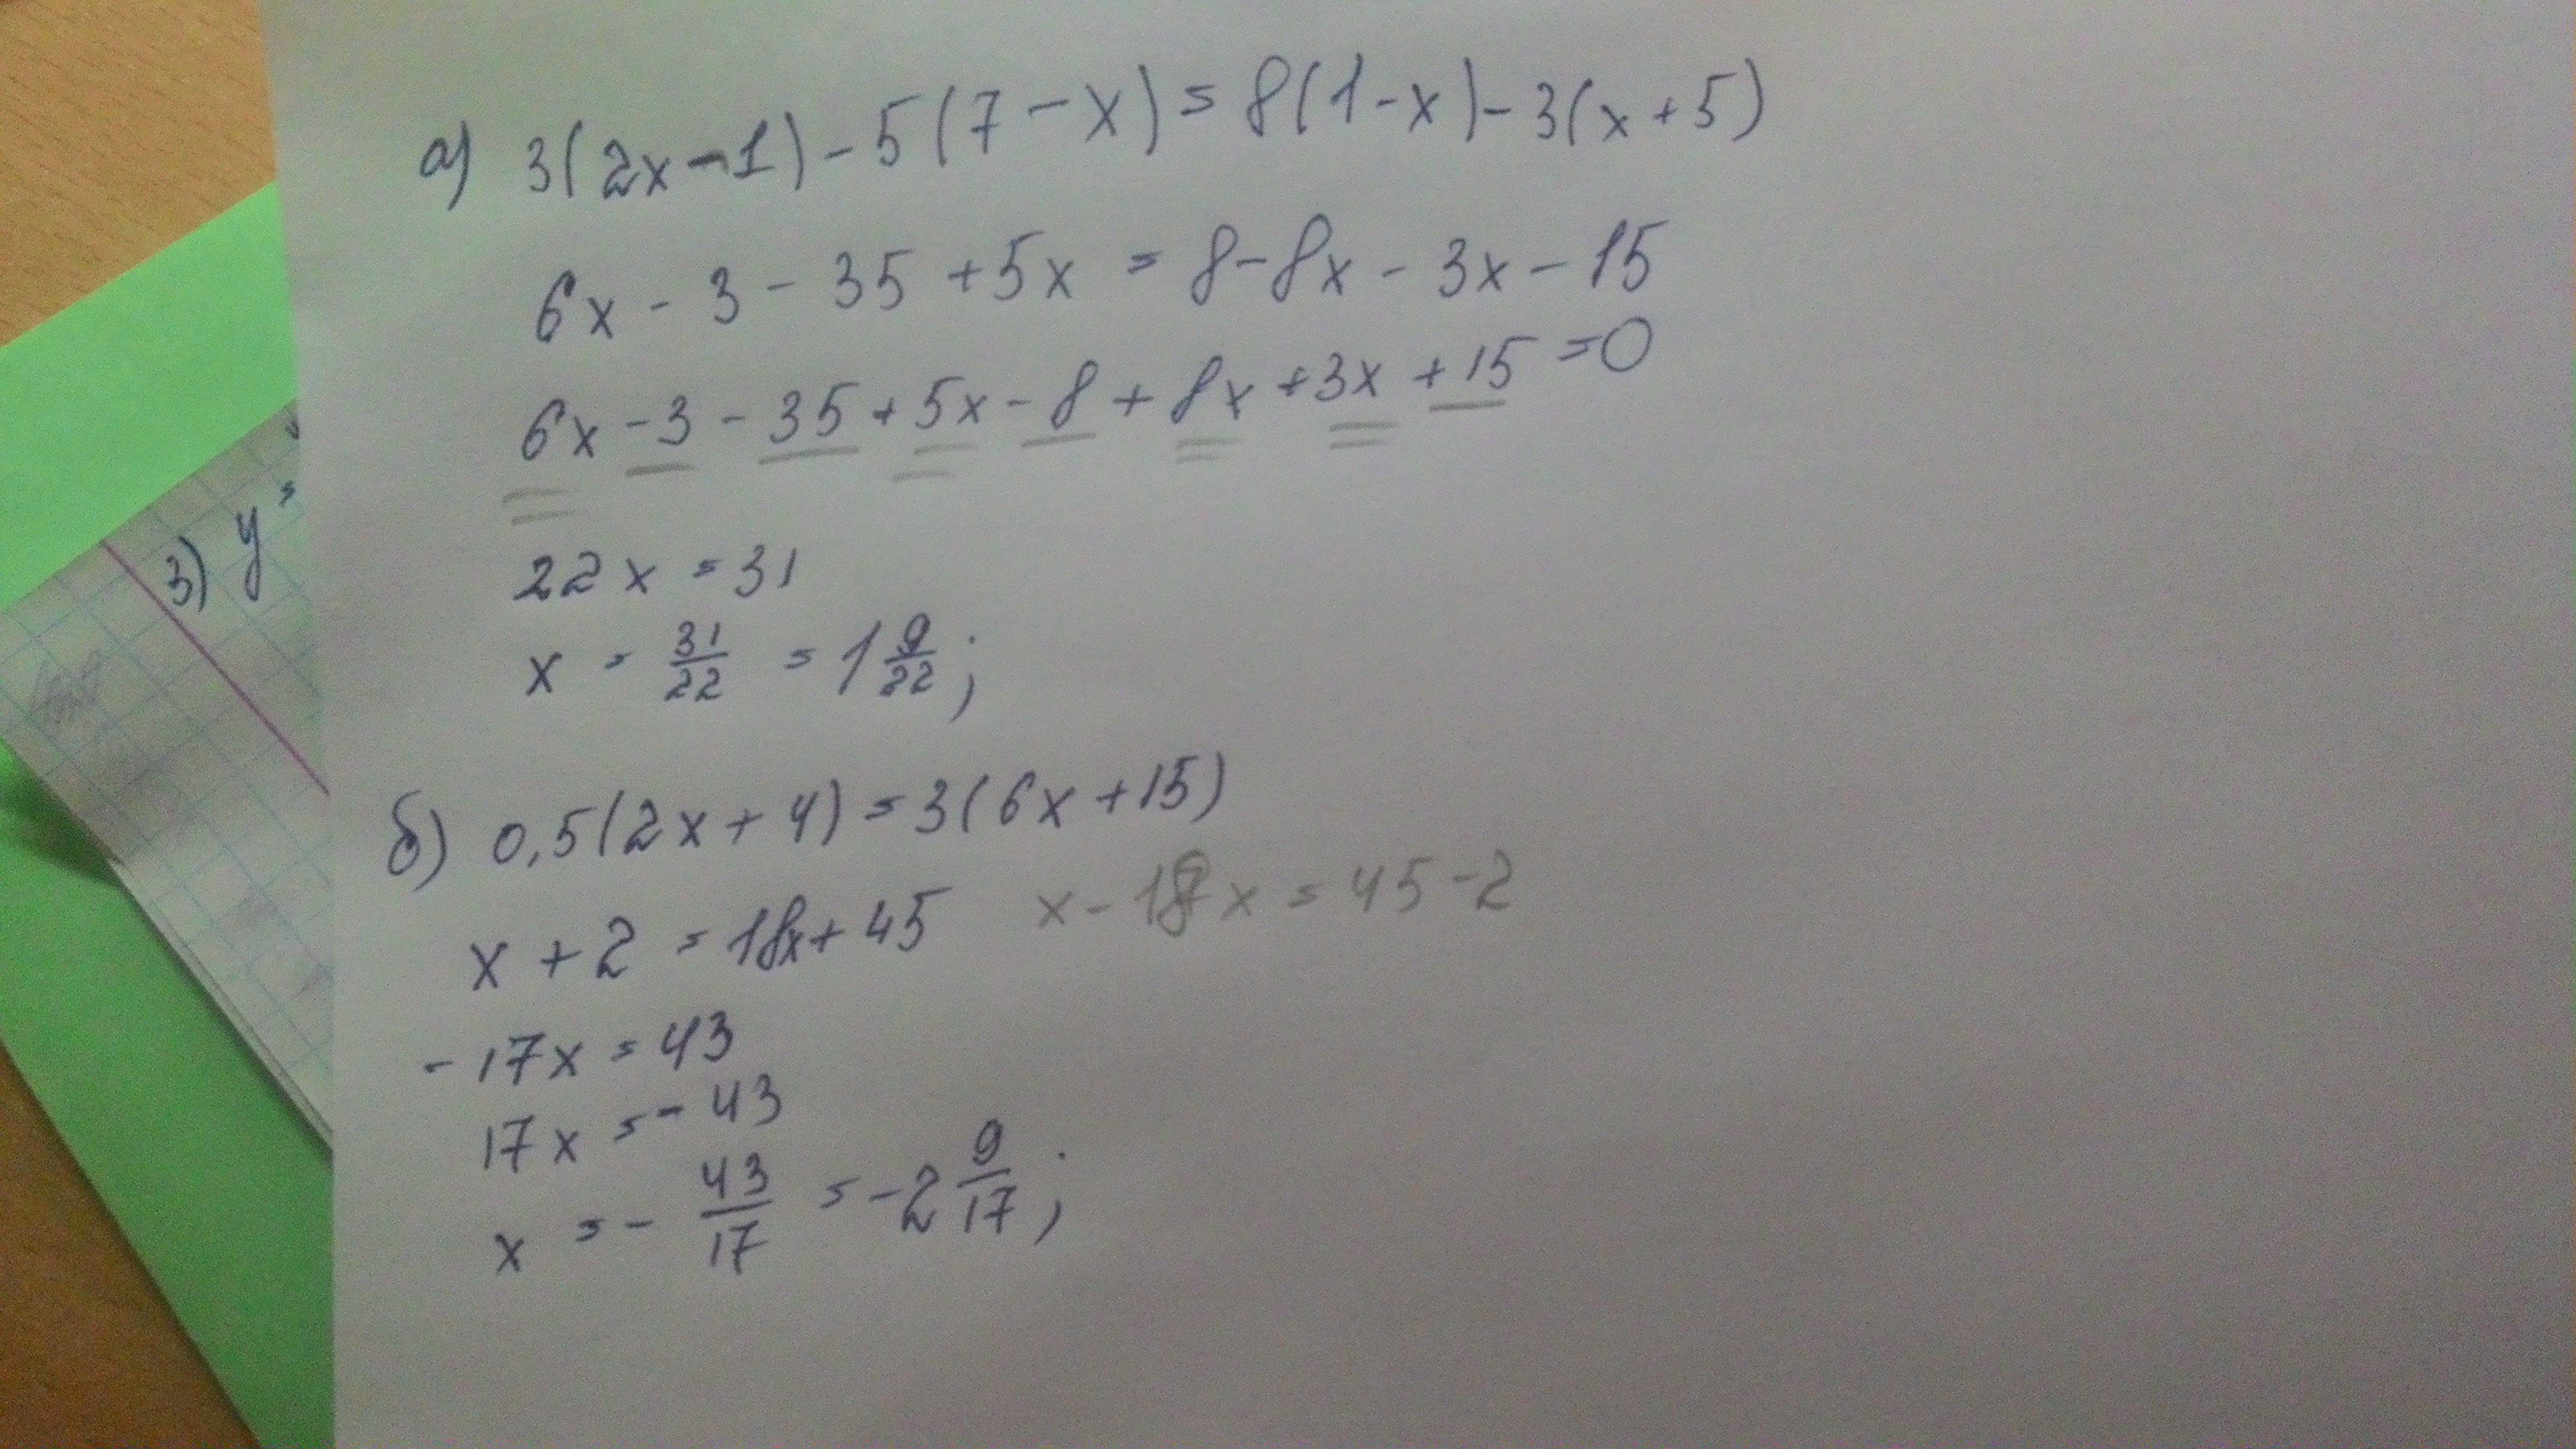 а) 3(2x-1)-5(7-x)=8(1-x)-3(x+5)
6x-3-35+5x=8-8x-3x-15
6x-3-35+5x-8+8x+3x+15=0
3) y=
22x=31
x=31/22=1 9/22;
б) 0,5(2x+4)=3(6x+15)
x+2=18x+45 x-18x=45-2
-17x=43
17x=-43
x=-43/17=-2 9/17;